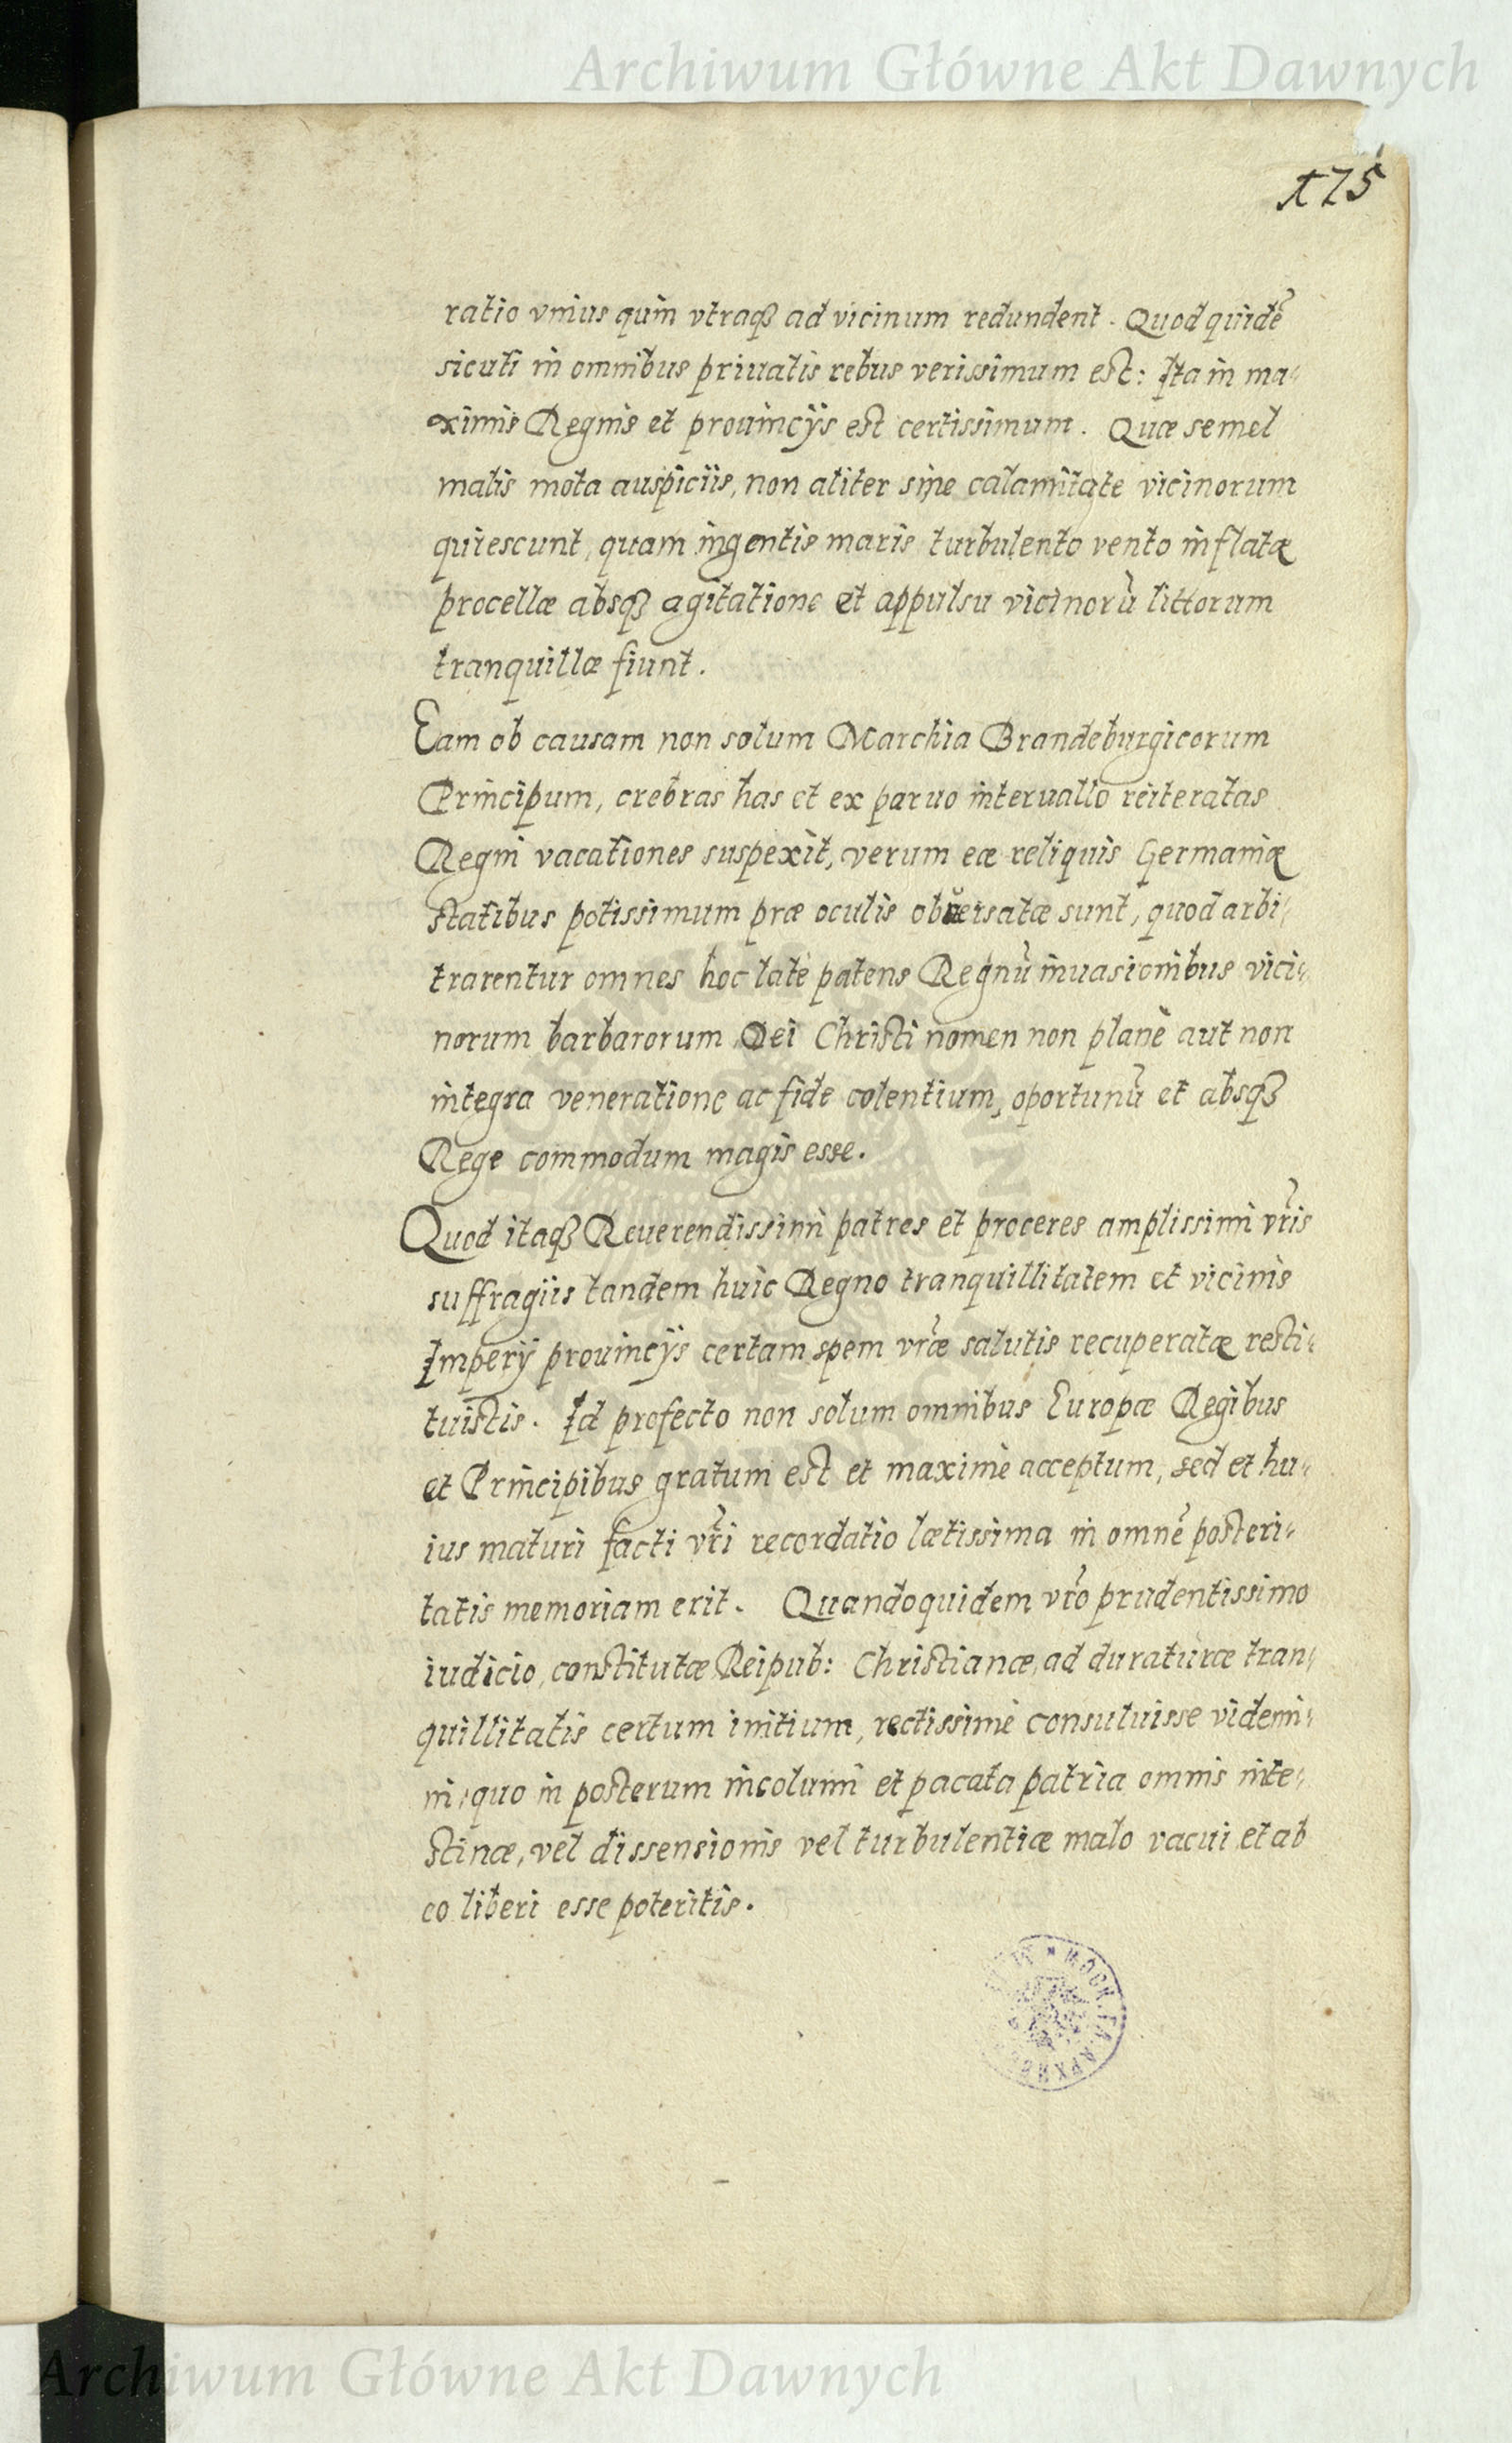 Archiwum Główne Akt Dawnych
175
ratio vnius quin vtraqȝ ad vicinum redundent. Quod quidẽ
sicuti in omnibus priuatis rebus verissimum est: Ita in ma-
ximis Regnis et prouincijs est certissimum. Quæ semel
malis mota auspiciis, non aliter sine calamitate vicinorum
quiescunt, quam ingentis maris turbulento vento inflatæ
procellæ absqȝ agitatione et appulsu vicinorũ littorum
tranquillæ fiunt.
Eam ob causam non solum Marchia Brandeburgicorum
Principum, crebras has et ex paruo interuallo reiteratas
Regni vacationes suspexit, verum eæ reliquis Germaniæ
statibus potissimum præ oculis obuersatæ sunt, quod arbi-
trarentur omnes hoc latè patens Regnũ inuasionibus vici-
norum barbarorum Dei Christi nomen non planè aut non
integra veneratione ac fide colentium, oportunũ et absqȝ
Rege commodum magis esse.
Quod itaqȝ Reuerendissimi patres et proceres amplissimi vr̃is
suffragiis tandem huic Regno tranquillitatem et vicinis
Imperij prouincijs certam spem vr̃æ salutis recuperatæ resti-
tuistis. Id profecto non solum omnibus Europæ Regibus
et Principibus gratum est et maximè acceptum, sed et hu-
ius maturi facti vr̃i recordatio lætissima in omnẽ posteri-
tatis memoriam erit. Quandoquidem vr̃o prudentissimo
iudicio, constitutæ Reipub: Christianæ, ad duraturæ tran-
quillitatis certum initium, rectissimè consuluisse videmi-
ni, quo in posterum incolumi et pacata patria omnis inte-
stinæ, vel dissensionis vel turbulentiæ malo vacui et ab
eo liberi esse poteritis.
Archiwum Główne Akt Dawnych